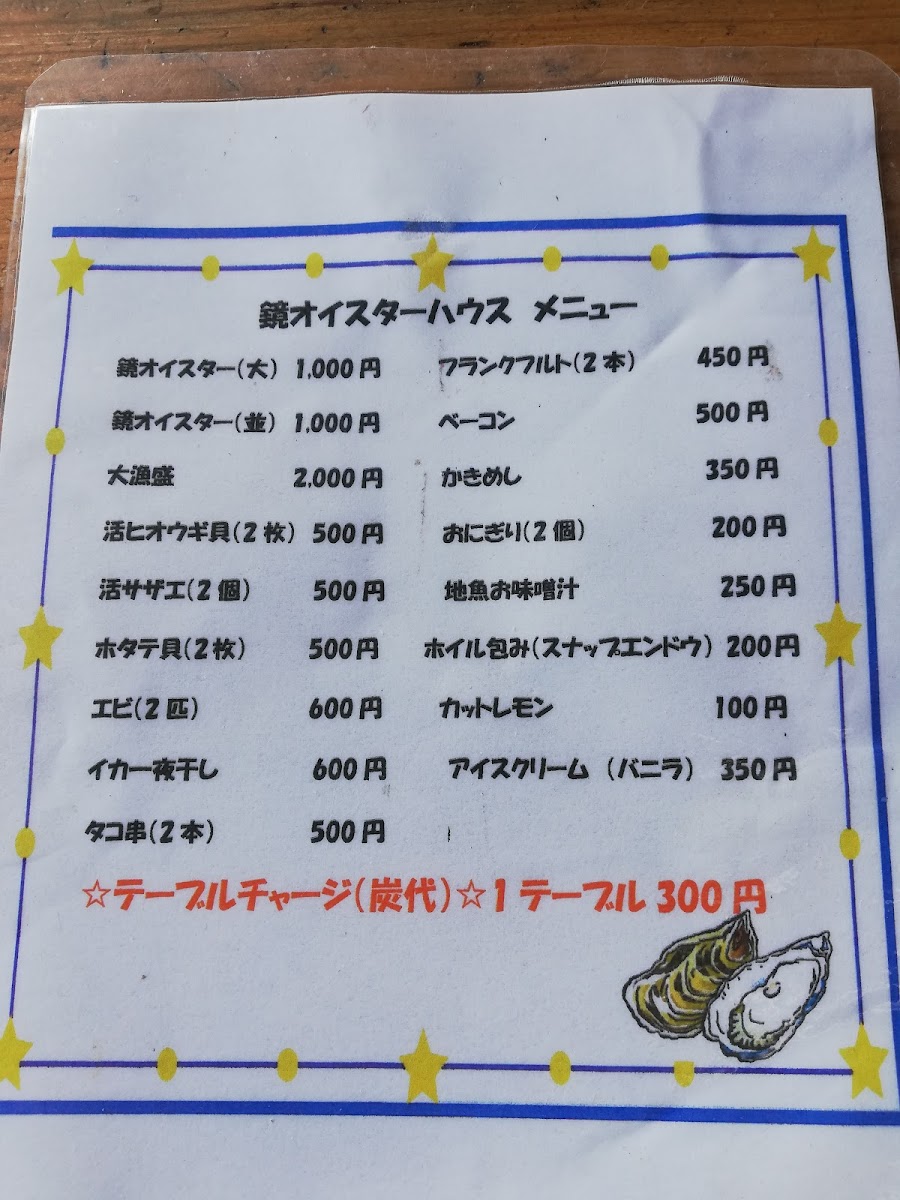 鏡オイスターハウス メニュー
鏡オイスター(大) 1,000円
鏡オイスター(並) 1,000円
大漁盛 2,000円
活ヒオウギ貝(2枚) 500円
活サザエ(2個) 500円
ホタテ貝(2枚) 500円
エビ(2匹) 600円
イカ一夜干し 600円
タコ串(2本) 500円
フランクフルト(2本) 450円
ベーコン 500円
かきめし 350円
おにぎり(2個) 200円
地魚お味噌汁 250円
ホイル包み(スナップエンドウ) 200円
カットレモン 100円
アイスクリーム (バニラ) 350円
☆テーブルチャージ(炭代)☆1テーブル 300円